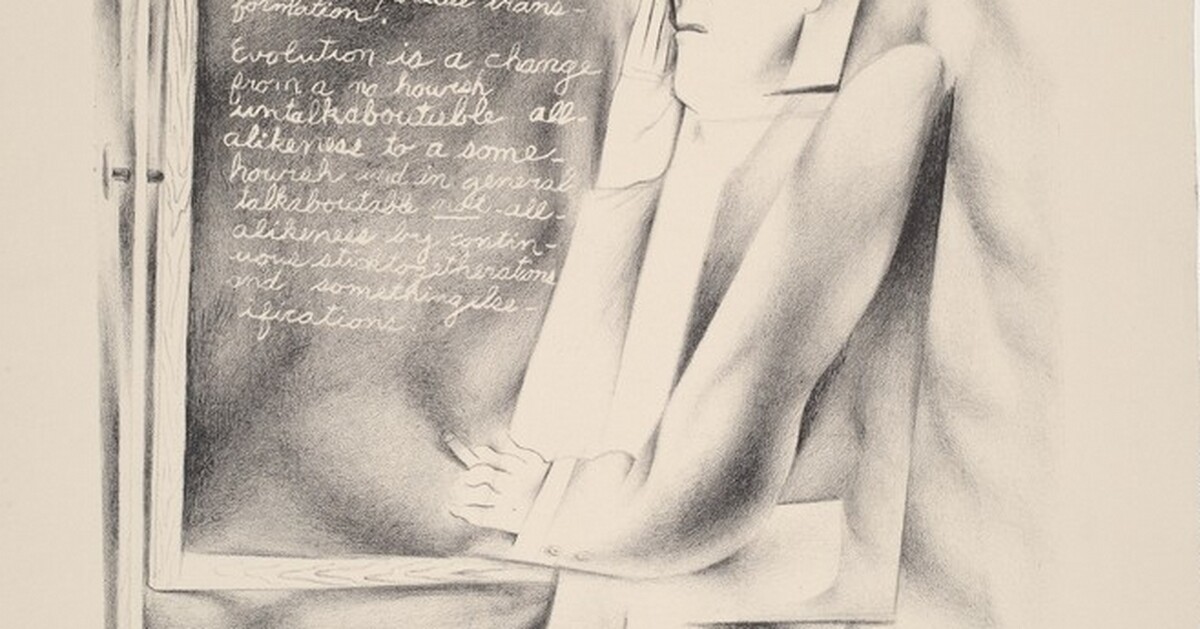 trans-
formation.
Evolution is a change
from a no howish
untalkaboutable all-
alikeness to a some-
howish and in general
talkaboutable not-all-
alikeness by contin-
uous sticktogetherations
and somethingelse-
ifications.